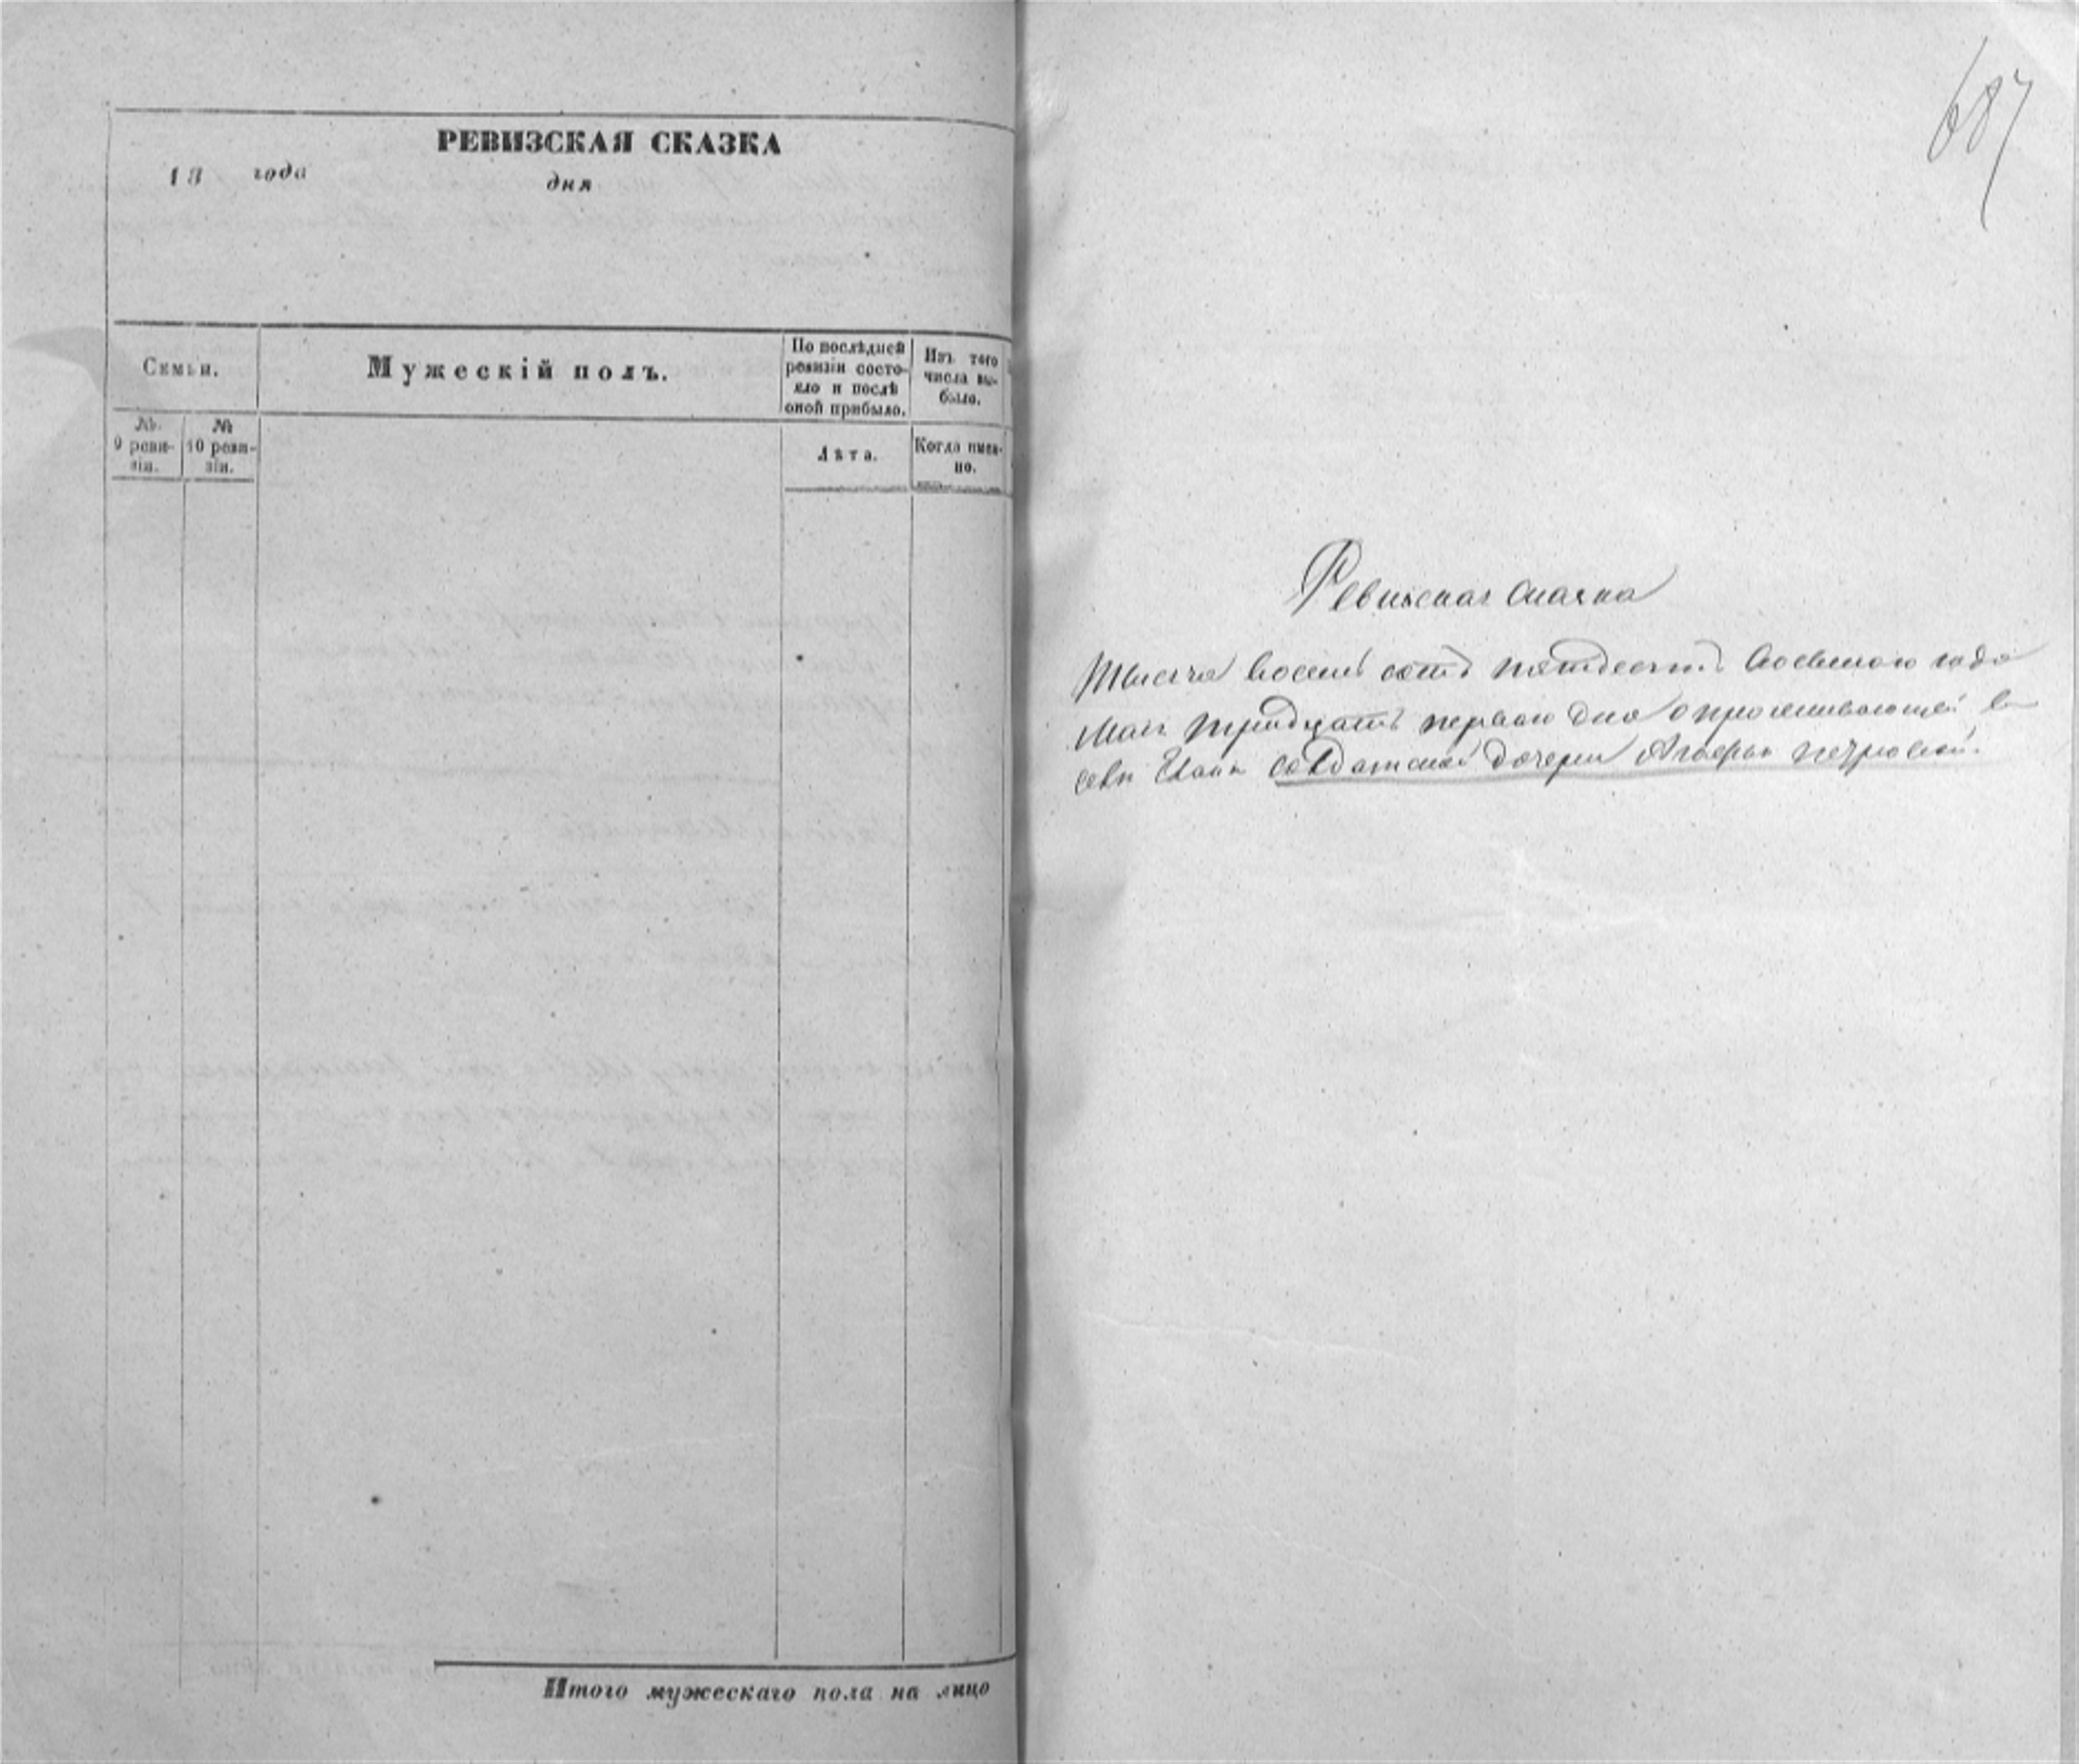 РЕВИЗСКАЯ СКАЗКА
18 года дня
Семьи.
Мужескій полъ.
По послѣдней
ревизіи состо-
яло и послѣ
оной прибыло.
Изъ того
числа вы-
было.
№
9 реви-
зіи.
№
10 реви-
зіи.
Лѣта.
Когда имен-
но.
Итого мужескаго пола на лицо
687
Ревизская сказка
Тысяча восемь сотъ пятдесятъ восьмого года
Мая тридцать перваго дня о проживающей в
солдатской дочери Агафьи Петровой.